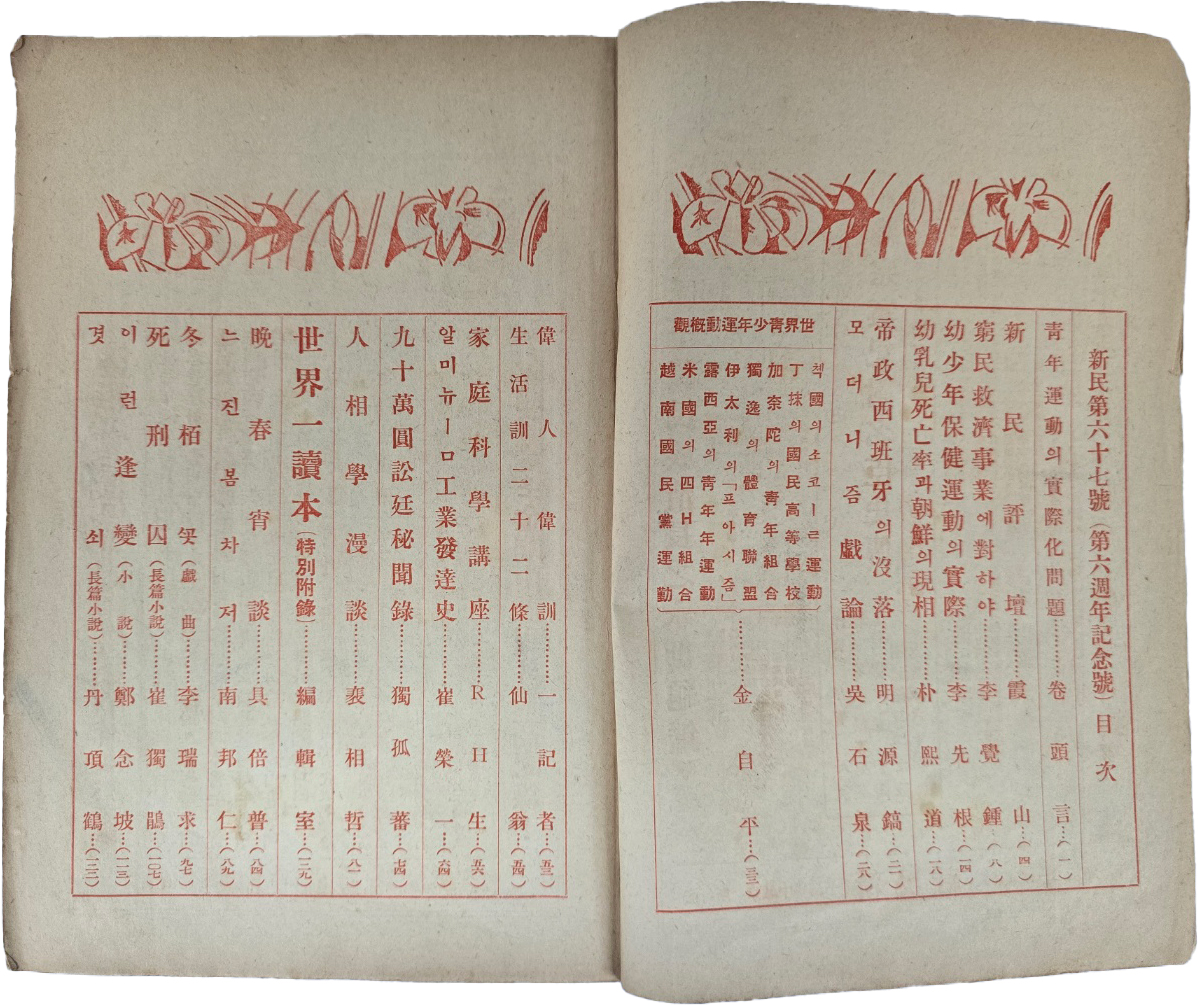 新民第六十七號(第六週年記念號)目次
靑年運動의實際化問題………卷頭言…(一)
新民評壇………霞山…(四)
窮民救濟事業에對하야………李覺鍾…(八)
幼少年保健運動의實際………李先根…(一四)
幼乳兒死亡率과朝鮮의現相………朴熙道…(一八)
帝政西班牙의沒落………明源鎬…(二一)
모더니즘戱論………吳石泉…(二八)
世界靑少年運動槪觀
첵國의소코ー르運動
丁抹의國民高等學校
加奈陀의靑年組合
獨逸의體育聯盟
伊太利의「프아시즘」
露西亞의靑年年運動
米國의四H組合
越南國民黨運動
………金自平…(三三)
偉人偉訓………一記者…(五三)
生活訓二十二條………仙翁…(五四)
家庭科學講座………RH生…(五六)
알미뉴ーㅁ工業發達史………崔榮一…(六四)
九十萬圓訟廷秘聞錄………獨孤蕃…(七四)
人相學漫談………裵相哲…(八一)
世界一讀本(特別附錄)………編輯室…(一三九)
晩春宵談………具倍普…(八四)
느진봄차저………南邦仁…(八九)
冬栢꼿(戱曲)………李瑞求…(九七)
死刑囚(長篇小說)………崔獨鵑…(一〇七)
이런逢變(小說)………鄭念坡…(一一三)
겻쇠(長篇小說)………丹頂鶴…(一二二)